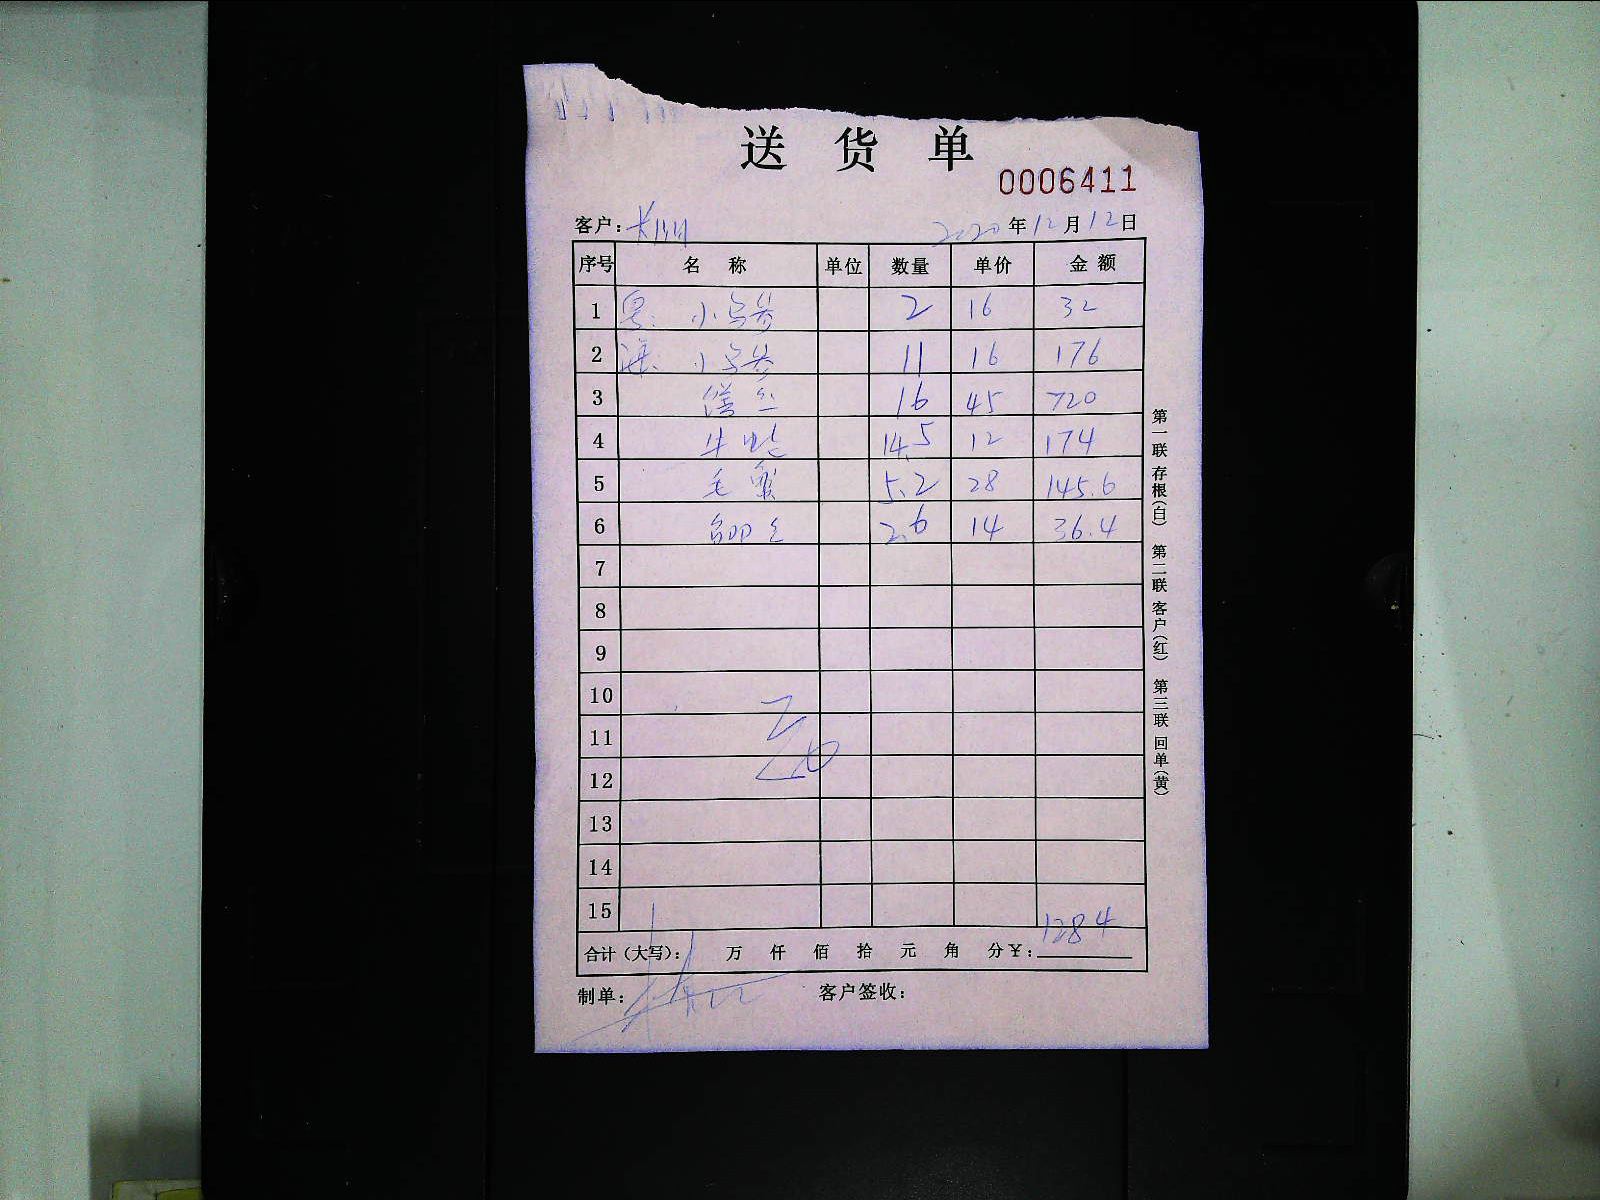 送货单
0006411
客户： 2020年12月12日
序号 名称 单位 数量 单价 金额
1 粤： 小乌参 2 16 32
2 小乌参 11 16 176
3 鳝丝 16 45 720
4 牛蛙 14.5 12 174
5 毛蟹 5.2 28 145.6
6 2.6 14 36.4
7
8
9
10
11
12
13
14
15
合计（大写）： 万 仟 佰 拾 元 角 分 ￥：1284
制单： 客户签收：
第一联 存根（白） 第二联 客户（红） 第三联 回单（黄）